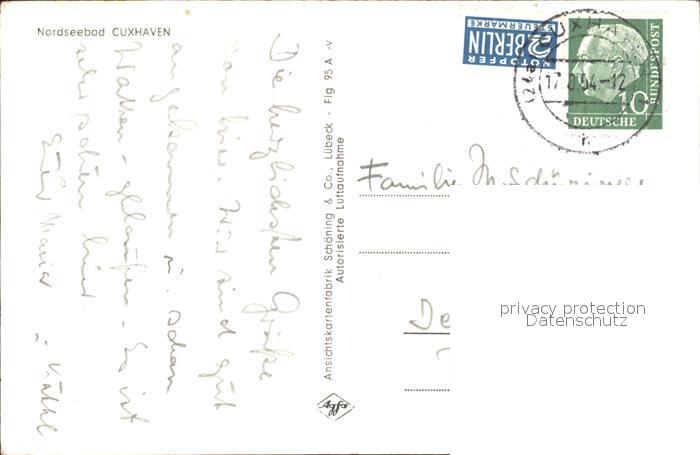 Nordseebad CUXHAVEN
NOTOPFER
2 BERLIN
STEUERMARKE
CUXHAVEN
17.8.54-12
10
DEUTSCHE
BUNDESPOST
Die herzlichsten Grüße
von hier. Wir sind gut
angekommen u. schon
Watten-gelaufen. Es ist
sehr schön hier.
Eure Maria
Ansichtskartenfabrik Schöning & Co., Lübeck - Flg 95 A -v
Autorisierte Luftaufnahme
Agfa
Familie
De
privacy protection
Datenschutz